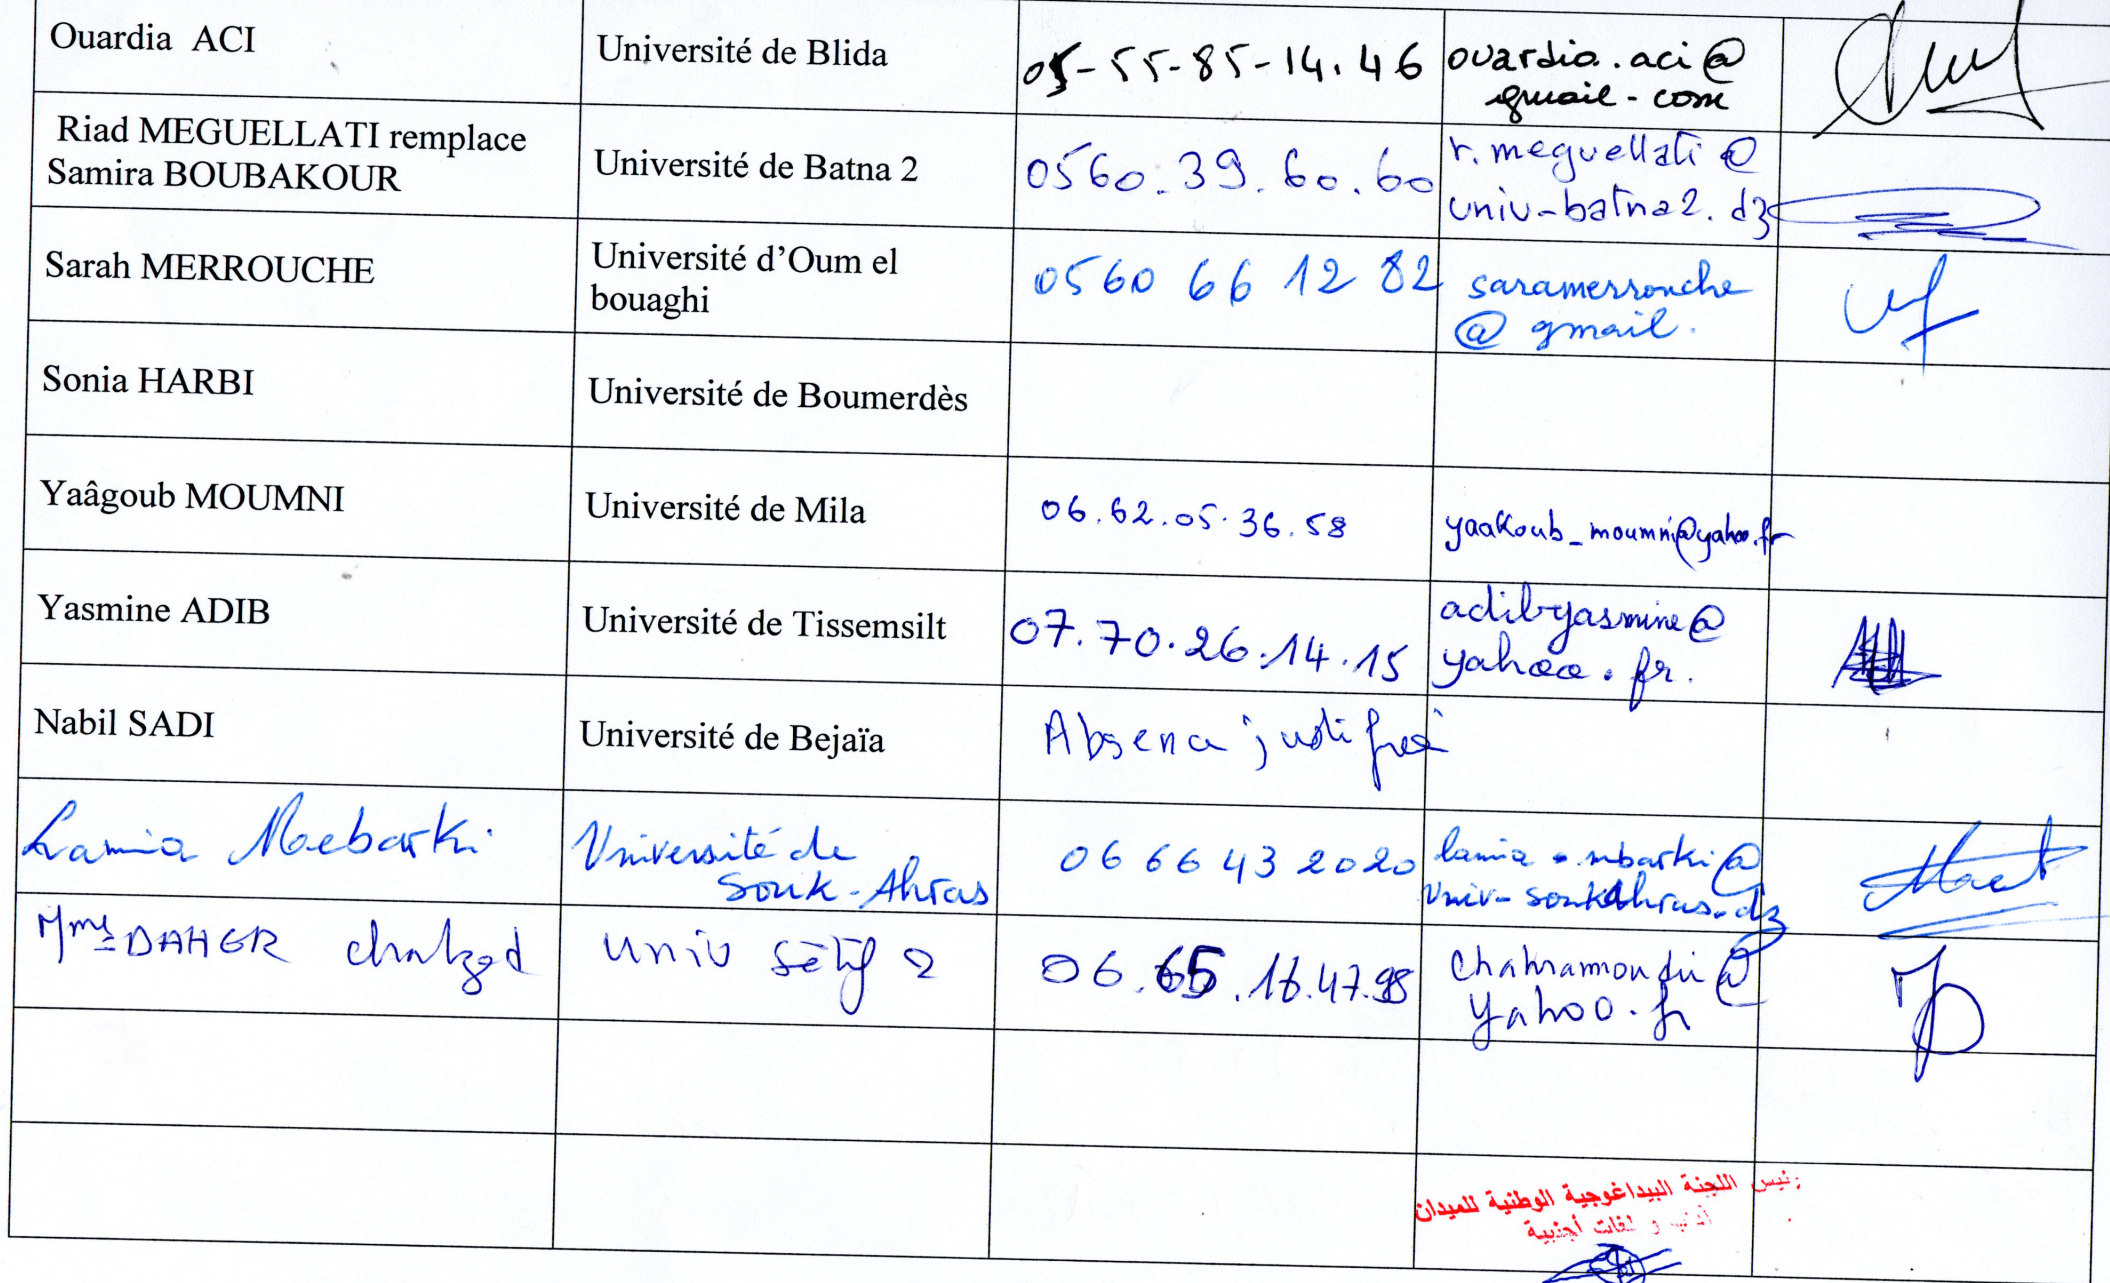 Ouardia ACI
Université de Blida
05-55-85-14.46
ouardia.aci@
gmail.com
Riad MEGUELLATI remplace
Samira BOUBAKOUR
Université de Batna 2
0560.39.60.60
r.meguellati@
univ-batna2.dz
Sarah MERROUCHE
Université d’Oum el
bouaghi
0560 66 12 82
saramerrouche
@gmail.
Sonia HARBI
Université de Boumerdès
Yaâgoub MOUMNI
Université de Mila
06.62.05.36.58
yaakoub_moumni@yahoo.fr
Yasmine ADIB
Université de Tissemsilt
07.70.26.14.15
adibyasmine@
yahoo.fr.
Nabil SADI
Université de Bejaïa
Absence justifiée
Lamia Mebarki
Université de
Souk-Ahras
06 66 43 2020
lamia.mbarki@
univ-soukahras.dz
Mme DAHER
Univ Sétif 2
06.65.
yahoo.fr
رئيس اللجنة البيداغوجية الوطنية للميدان
آداب و لغات أجنبية